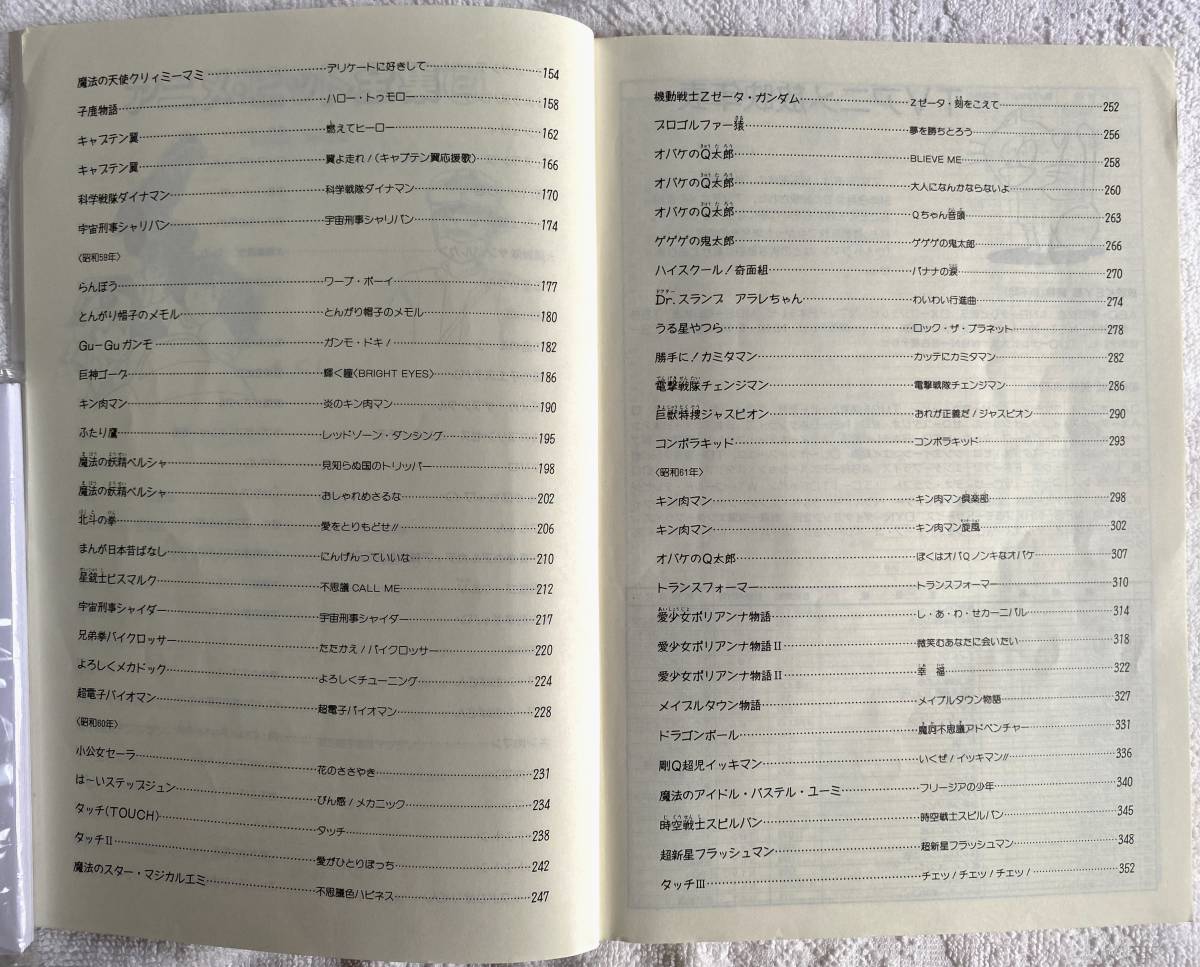 魔法の天使クリィミーマミ……アリケートに好きして……154
子鹿物語……ハロー・トゥモロー……158
キャプテン翼……燃えてヒーロー……162
キャプテン翼……翼よ走れ!(キャプテン翼応援歌)……166
科学戦隊ダイナマン……科学戦隊ダイナマン……170
宇宙刑事シャリバン……宇宙刑事シャリバン……174
〈昭和59年〉
らんぽう……ワープ・ボーイ……177
とんがり帽子のメモル……とんがり帽子のメモル……180
Gu-Guガンモ……ガンモ・ドキ!……182
巨神ゴーグ……輝く瞳〈BRIGHT EYES〉……186
キン肉マン……炎のキン肉マン……190
ふたり鷹……レッドゾーン・ダンシング……195
魔法の妖精ペルシャ……見知らぬ国のトリッパー……198
魔法の妖精ペルシャ……おしゃれめさるな……202
北斗の拳……愛をとりもどせ!!……206
まんが日本昔ばなし……にんげんっていいな……210
星銃士ビスマルク……不思議 CALL ME……212
宇宙刑事シャイダー……宇宙刑事シャイダー……217
兄弟拳バイクロッサー……たたかえ!バイクロッサー……220
よろしくメカドック……よろしくチューニング……224
超電子バイオマン……超電子バイオマン……228
〈昭和60年〉
小公女セーラ……花のささやき……231
は〜いステップジュン……びん感!メカニック……234
タッチ(TOUCH)……タッチ……238
タッチⅡ……愛がひとりぼっち……242
魔法のスター・マジカルエミ……不思議色ハピネス……247
機動戦士Zゼータ・ガンダム……Zゼータ・刻をこえて……252
プロゴルファー猿……夢を勝ちとろう……256
オバケのQ太郎……BLIEVE ME……258
オバケのQ太郎……大人になんかならないよ……260
オバケのQ太郎……Qちゃん音頭……263
ゲゲゲの鬼太郎……ゲゲゲの鬼太郎……266
ハイスクール!奇面組……バナナの涙……270
Dr.スランプ アラレちゃん……わいわい行進曲……274
うる星やつら……ロック・ザ・プラネット……278
勝手に!カミタマン……カッテにカミタマン……282
電撃戦隊チェンジマン……電撃戦隊チェンジマン……286
巨獣特捜ジャスピオン……おれが正義だ!ジャスピオン……290
コンポラキッド……コンポラキッド……293
〈昭和61年〉
キン肉マン……キン肉マン倶楽部……298
キン肉マン……キン肉マン旋風……302
オバケのQ太郎……ぼくはオバQノンキなオバケ……307
トランスフォーマー……トランスフォーマー……310
愛少女ポリアンナ物語……し・あ・わ・せカーニバル……314
愛少女ポリアンナ物語Ⅱ……微笑むあなたに会いたい……318
愛少女ポリアンナ物語Ⅱ……幸 福……322
メイプルタウン物語……メイプルタウン物語……327
ドラゴンボール……魔訶不思議アドベンチャー……331
剛Q超児イッキマン……いくぜ!イッキマン!!……336
魔法のアイドル・パステル・ユーミ……フリージアの少年……340
時空戦士スピルバン……時空戦士スピルバン……345
超新星フラッシュマン……超新星フラッシュマン……348
タッチⅢ……チェッ!チェッ!チェッ!……352